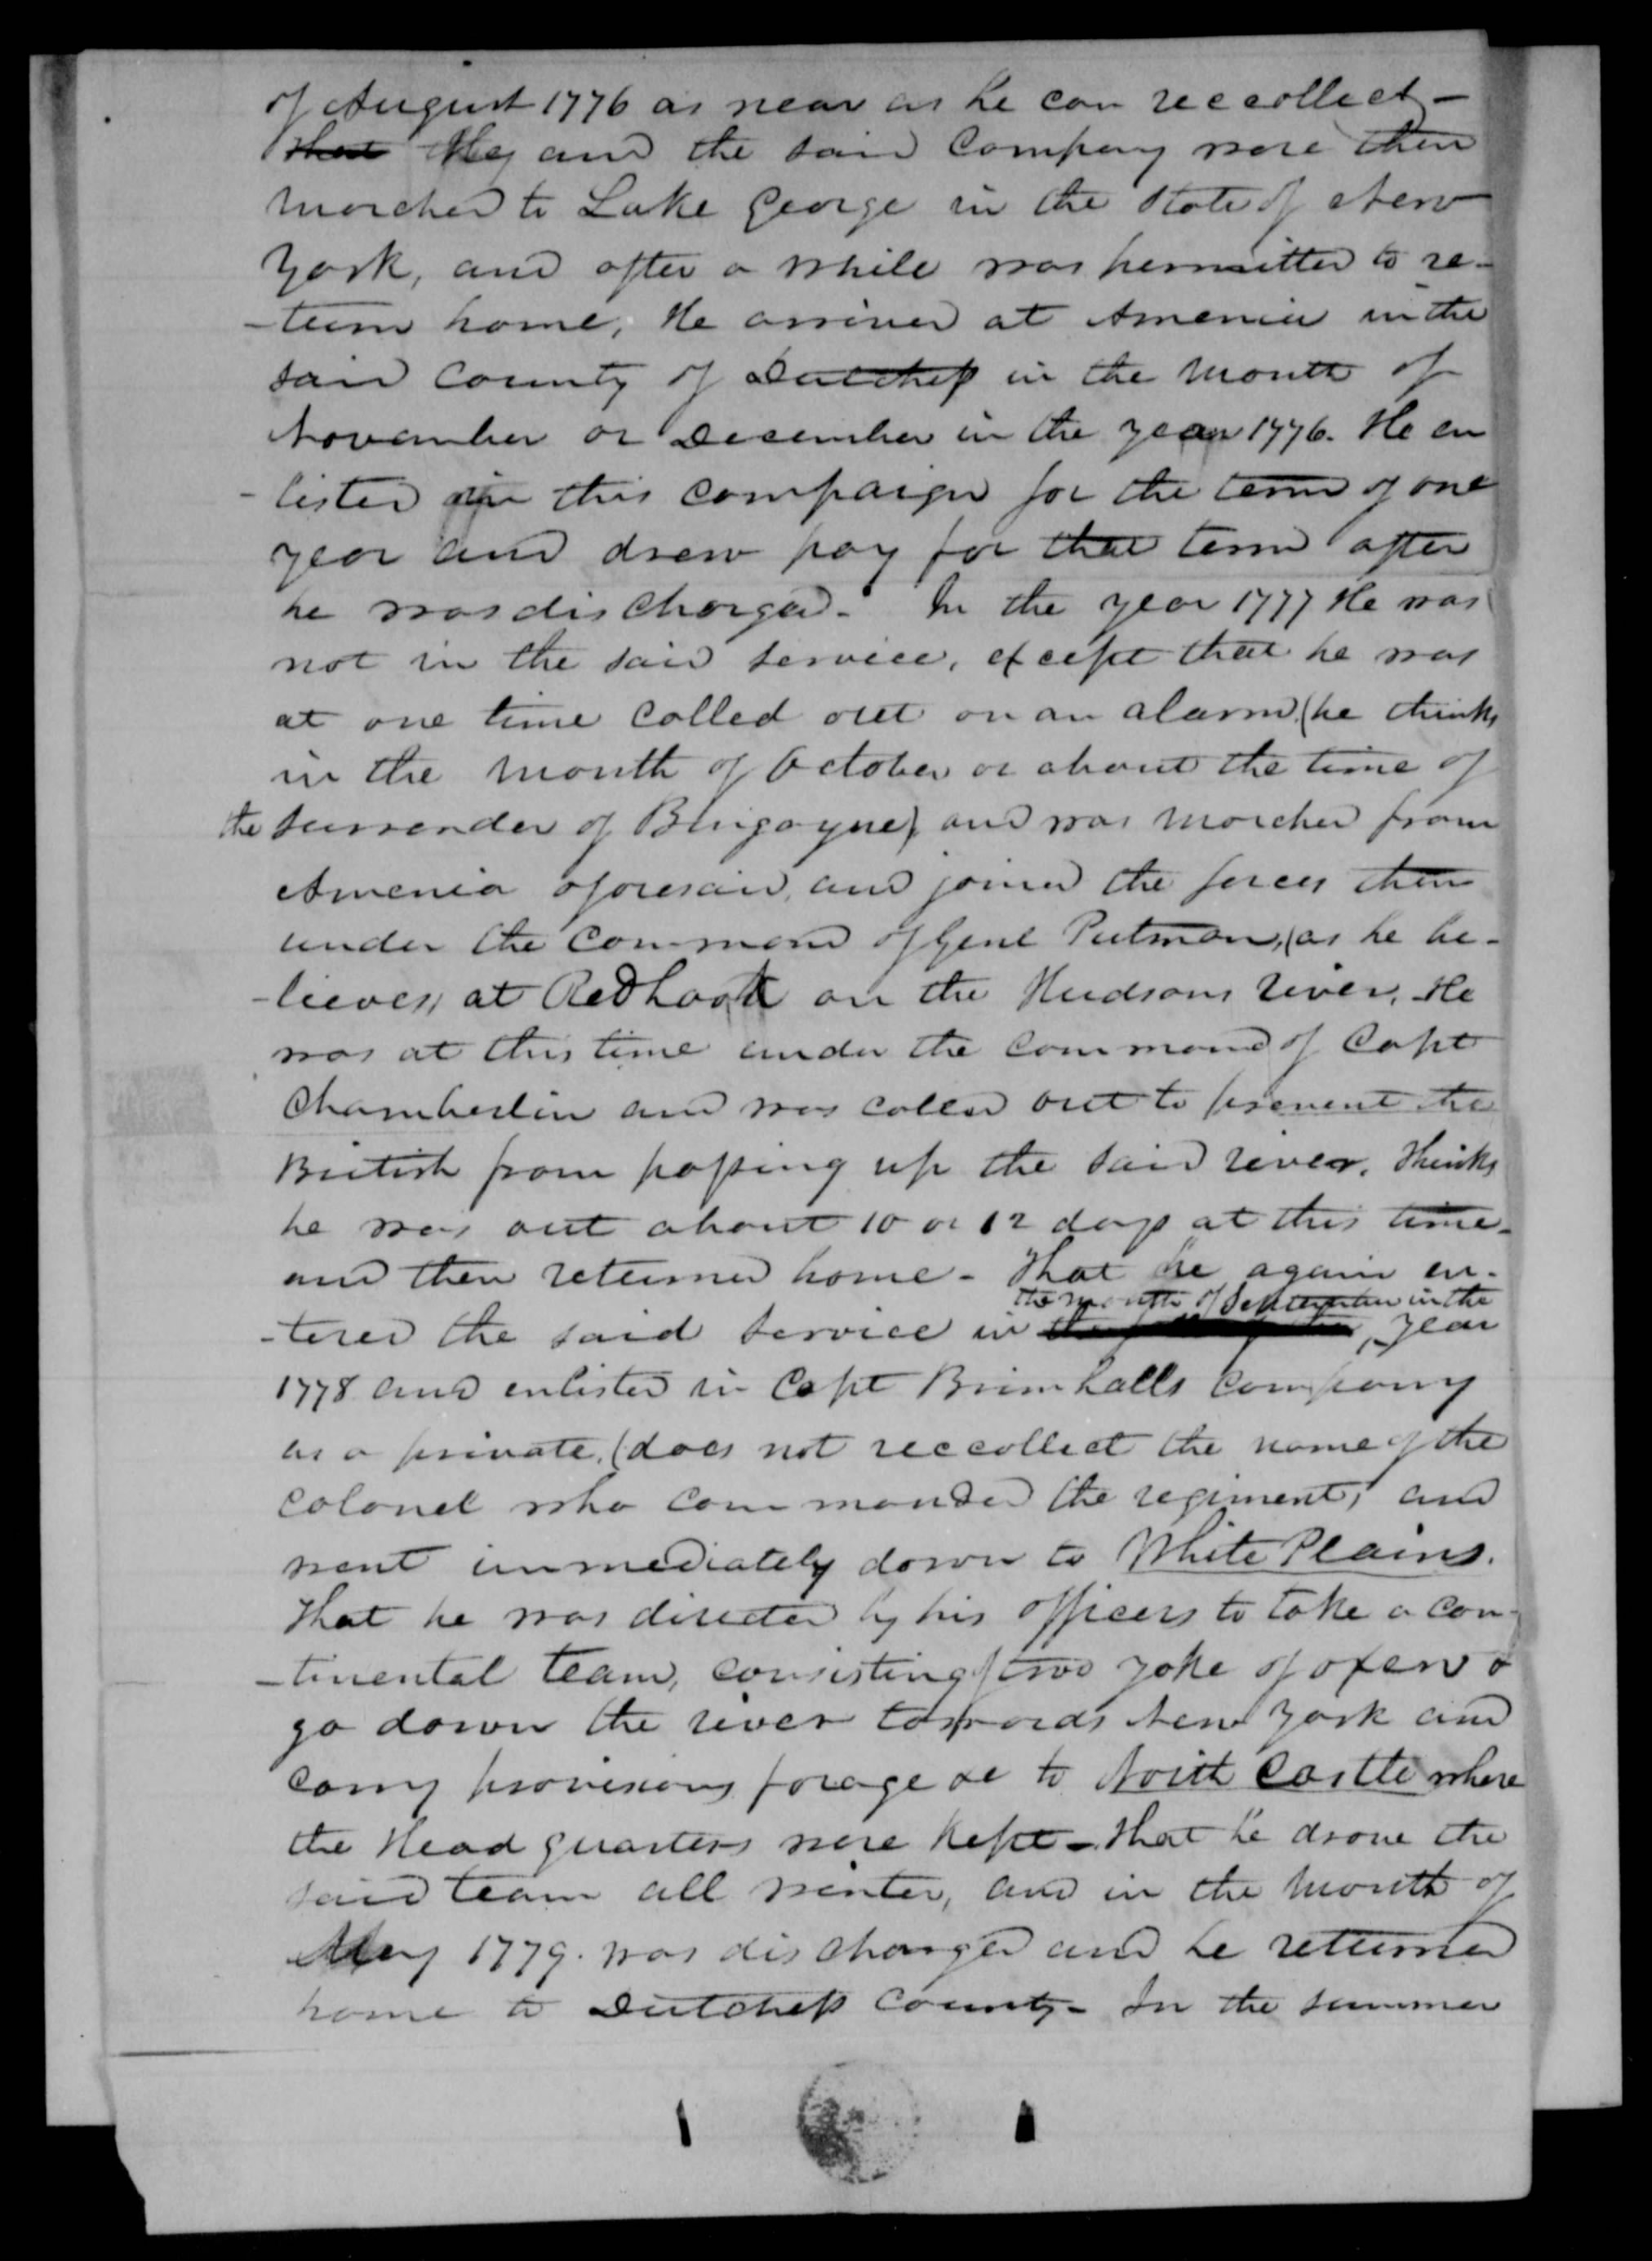 of August 1776 as near as he can reccollect –
that they and the said Company were then
marched to Lake George in the State of New
York, and after a while was permitted to re-
-turn home, He arrived at Amenia in the
said County of Dutchess in the month of
November or December in the year 1776. He en
-listed in this campaign for the term of one
year and drew pay for that term after
he was discharged. In the year 1777 He was
not in the said service, except that he was
at one time called out on an alarm (he thinks
in the month of October or about the time of
the surrender of Burgoyne) and was marched from
Amenia aforesaid, and joined the forces then
under the command of Genl Putman, (as he be-
-lieves) at Redhook on the Hudsons river. He
was at this time under the command of Capt
Chamberlin and was called out to prevent the
British from passing up the said river. Thinks
he was out about 10 or 12 days at this time-
and then returned home – That he again en-
the month of September in the
-tered the said service in , year
1778 and enlisted in Capt Brimhalls company
as a private, (does not reccollect the name of the
Colonel who commanded the regiment) and
went immediately down to White Plains.
That he was directed by his officers to take a Con-
-tinental team, consisting of two yoke of oxen &
go down the river towards New York and
carry provisions forage &c to North Castle where
the Head quarters were kept – That he drove the
said team all winter, and in the month of
May 1779. was discharged and he returned
home to Dutchess County – In the summer